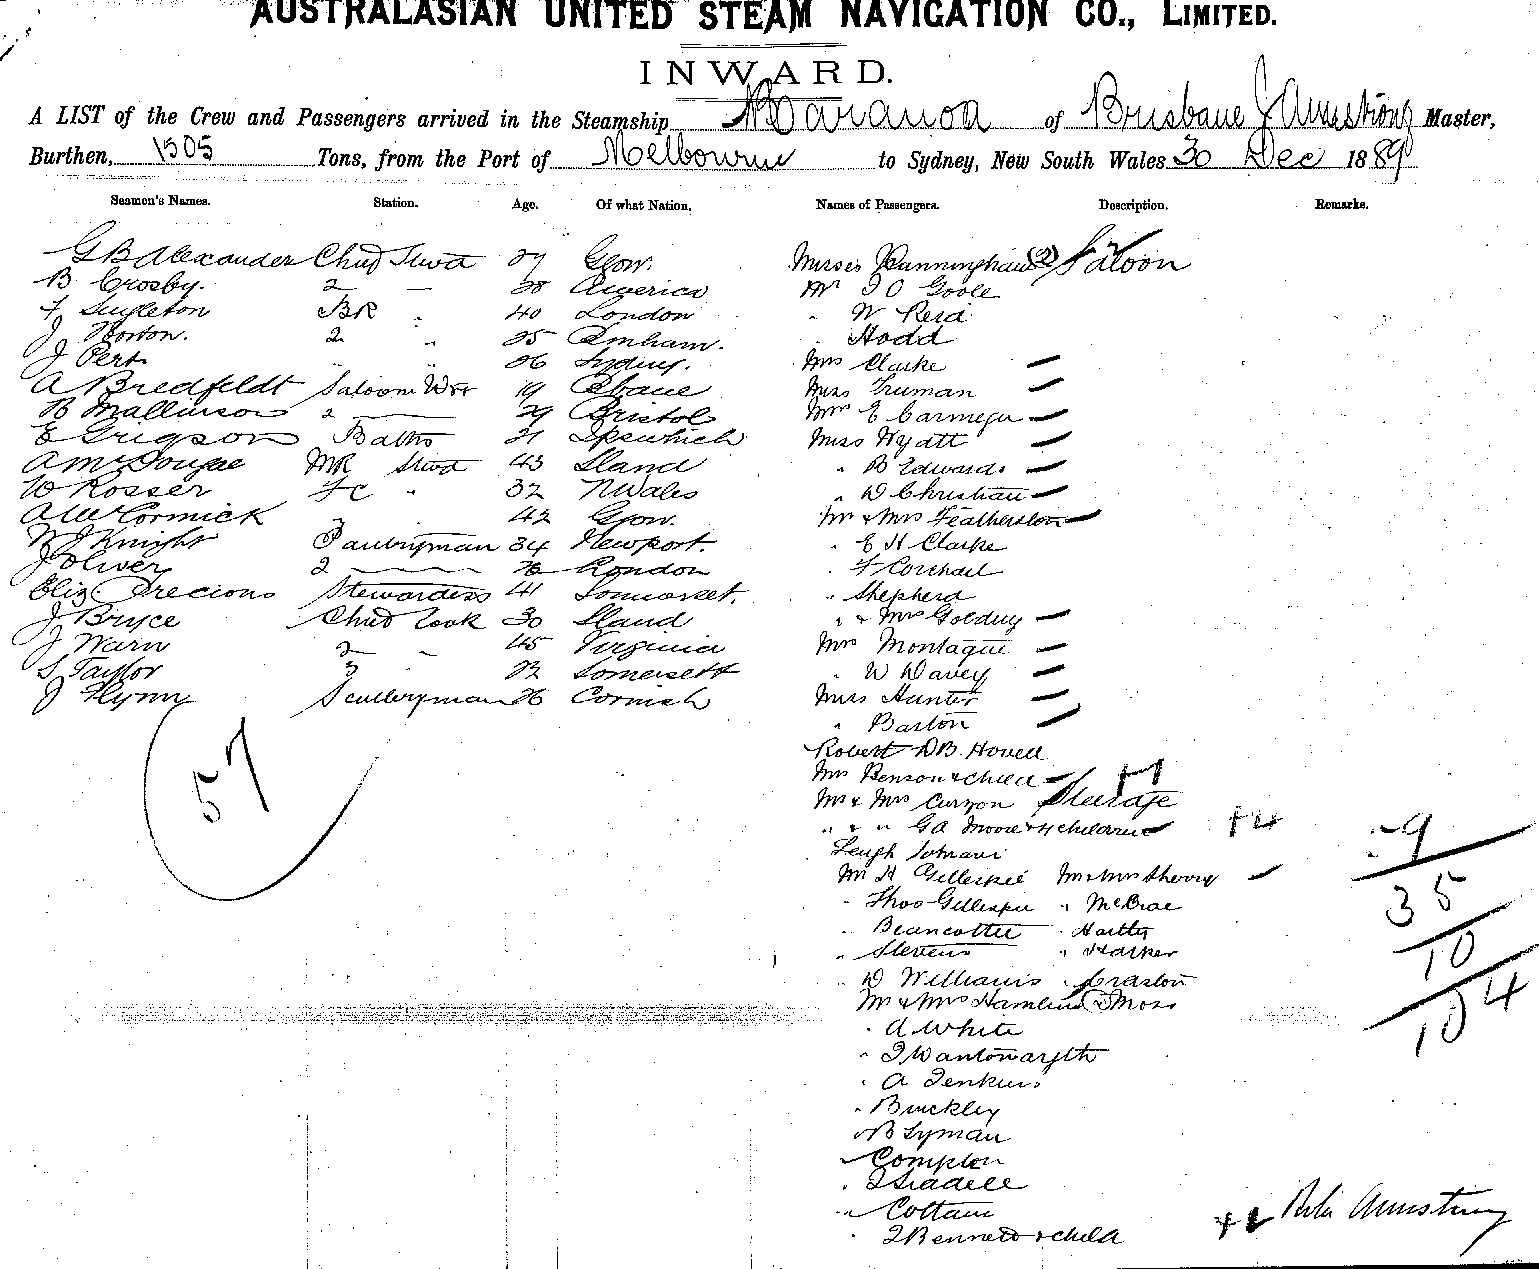 AUSTRALASIAN UNITED STEAM NAVIGATION CO., LIMITED.
INWARD.
A LIST of the Crew and Passengers arrived in the Steamship Maranoa of Brisbane J Armstrong Master,
Burthen, 1505 Tons, from the Port of Melbourne to Sydney, New South Wales 30 Dec 1889
Seamen's Names. Station. Age. Of what Nation. Names of Passengers. Description. Remarks.
G B Alexander Chief Stwd Glow. Misses Cunningham (2) Saloon
B Crosby. 2 " 28 America Mr J O Goole
F Singleton BR " 40 London " W Reid
J Norton. 2 " 25 " Hodd
J Pert " " 26 Sydney. Mrs Clarke
A Bredfeldt Saloon Wtr 19 Miss Truman
B Mallinson 2 29 Bristol Mrs E
E Grigson Baths 21 Ipswich Miss Wyatt
A McDougae MR Stwd 43 Sland " B Edwards
W Rosser FC " 32 N Wales " D Christian
A McCormick 3 42 Glow. Mr & Mrs Featherston
Knight Pantryman 34 Newport. " E H Clarke
J Oliver 2 London " F
Eliz. Precious Stewardess 41 Somerset. " Shepherd
J Bryce Chief Cook 30 Sland " & Mrs Golding
J Warn 2 " 45 Virginia Mrs Montague
S Taylor 3 " 22 Somersett " W Davey
J Flynn Sculleryman 26 Cornish Miss Hunter
" Barton
57
Robert D B. Howell
Mrs Benson & child
Mr & Mrs Curzon Steerage
" " " G A Moore & 4 children +4 9
Leugh
Mr H Gillespie Mr & Mrs Sherry 35
" Thos Gillespie " McCrae
" Beancotter " Hartley 10
" Stevens " Harker
" D Williams " Craston
Mr & Mrs Hamlin & Moss 104
" A White
" J
" A Jenkins
" Buckley
" B Lyman
" Compton
" J
" Cottam
" J Bennett & child + Armstrong